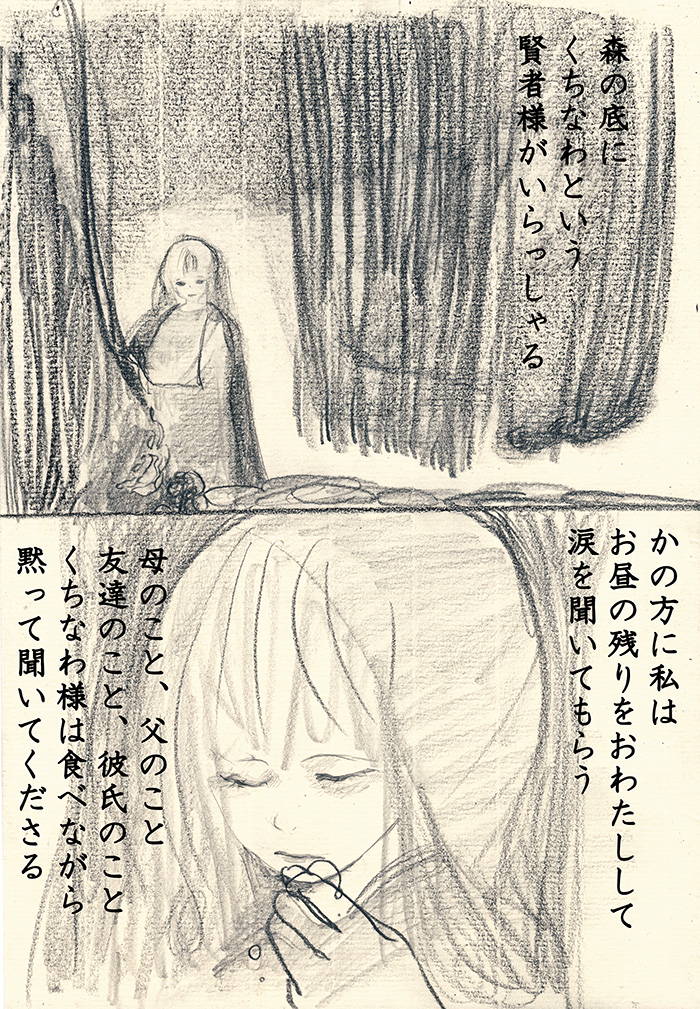 森の底に
くちなわという
賢者様がいらっしゃる
かの方に私は
お昼の残りをおわたしして
涙を聞いてもらう
母のこと、父のこと
友達のこと、彼氏のこと
くちなわ様は食べながら
黙って聞いてくださる